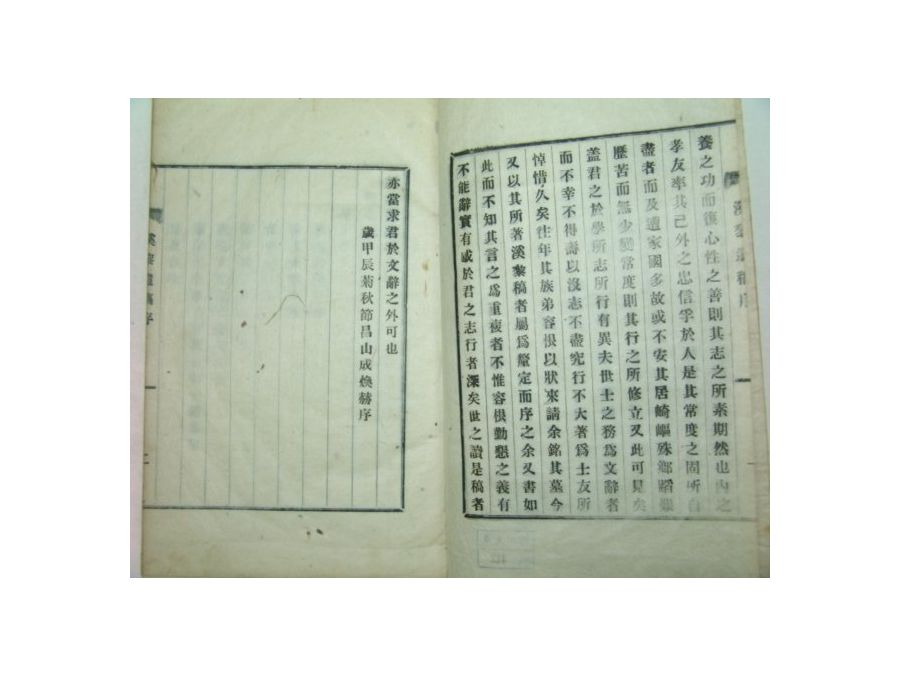 溪黎遺稿序
養之功而復心性之善則其志之所素期然也內之
孝友率其己外之忠信孚於人是其常度之固所自
盡者而及遭家國多故或不安其居崎嶇殊鄉蹈艱
歷苦而無少變常度則其行之所修立又此可見矣
蓋君之於學所志所行有異夫世士之務爲文辭者
而不幸不得壽以沒志不盡究行不大著爲士友所
悼惜久矣往年其族弟容根以狀來請余銘其墓今
又以其所著溪黎稿者屬爲釐定而序之余又書如
此而不知其言之爲重複者不惟容根勤懇之義有
不能辭實有感於君之志行者深矣世之讀是稿者
亦當求君於文辭之外可也
歲甲辰菊秋節昌山成煥赫序
溪黎遺稿序
二